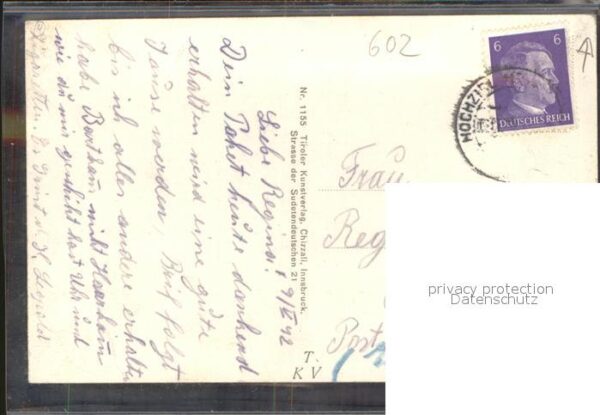 602
6 6
DEUTSCHES REICH
HOCHZIRL
9/II 42
Liebe Regina!
Dein Paket heute dankend
erhalten wird eine gute
Jause werden, Brief folgt
bis ich alles andere erhalten
habe
wie du mir geschickt hast Uhr und
Zigaretten.
Nr. 1155 Tiroler Kunstverlag, Chizzali, Innsbruck,
Strasse der Sudetendeutschen 21
T.
K V
Frau
Reg
Post
privacy protection
Datenschutz